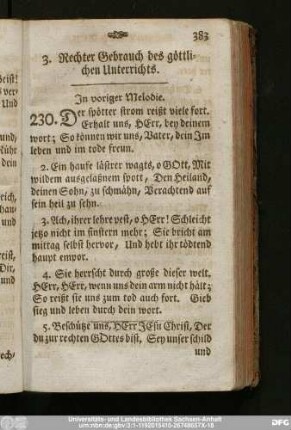 383
3. Rechter Gebrauch des göttli-
chen Unterrichts.
In voriger Melodie.
230. Der spötter strom reißt viele fort.
Erhalt uns, HErr, bey deinem
wort; So können wir uns, Vater, dein Im
leben und im tode freun.
2. Ein haufe lästrer wagts, o GOtt, Mit
wildem ausgelaßnem spott, Den Heiland,
deinen Sohn, zu schmähn, Verachtend auf
sein heil zu sehn.
3. Ach, ihrer lehre pest, o HErr! Schleicht
jetzo nicht im finstern mehr; Sie bricht am
mittag selbst hervor, Und hebt ihr tödtend
haupt empor.
4. Sie herrscht durch große dieser welt.
HErr, HErr, wenn uns dein arm nicht hält;
So reißt sie uns zum tod auch fort. Gieb
sieg und leben durch dein wort.
5. Beschütze uns, HErr JEsu Christ, Der
du zur rechten GOttes bist, Sey unser schild
und
Universitäts- und Landesbibliothek Sachsen-Anhalt